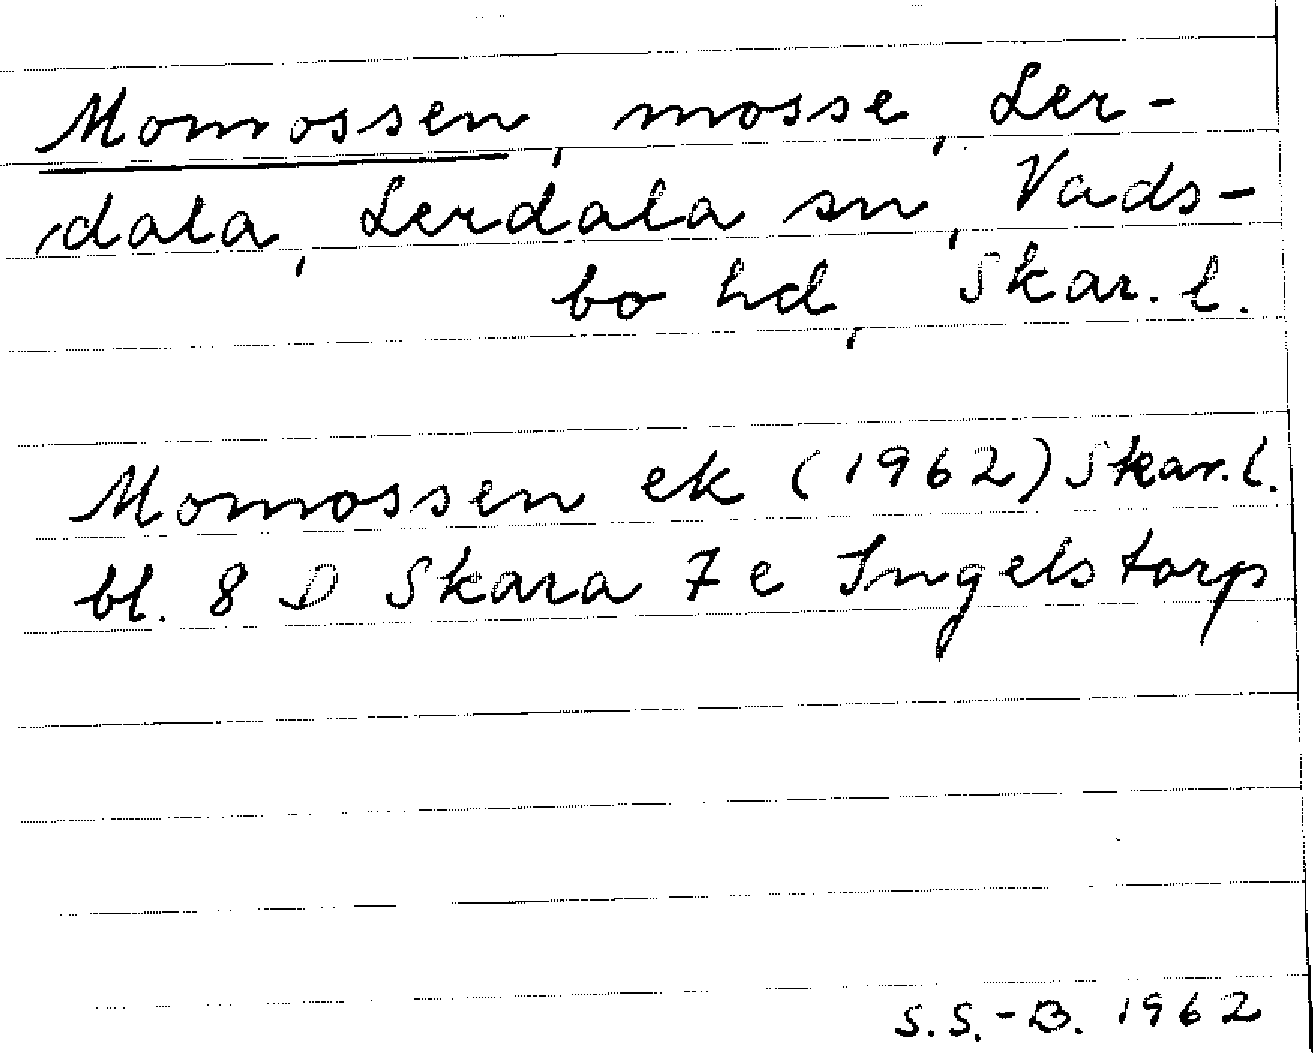 Momossen, mosse, Ler-
dala, Lerdala sn, Vads-
bo hd, Skar. l.
Momossen ek (1962) Skar. l.
bl. 8 D Skara 7 e Ingelstorp
S.S.-B. 1962